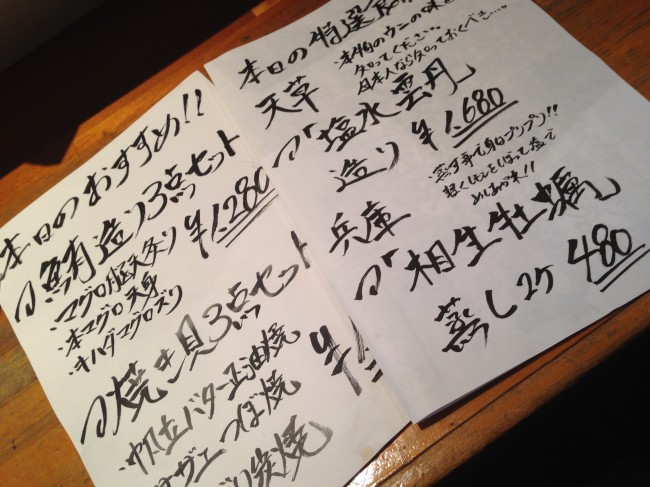 本日のおすすめ!!
鮪造り3点セット
¥1,280
・マグロ脳天炙り
・本マグロ天身
・キハダマグロズリ
焼き貝3点セット
・帆立バター正油焼
サザエつぼ焼
炭焼
本日の特選
・本物のウニの味を
知ってください…。
日本人なら知っておくべき…。
天草
塩水雲丹
造り ¥1,680
・蒸す事で身はプリンプリン!!
軽くレモンをしぼって塩で
めしあが味!!
兵庫
相生牡蠣
蒸し2ケ 480